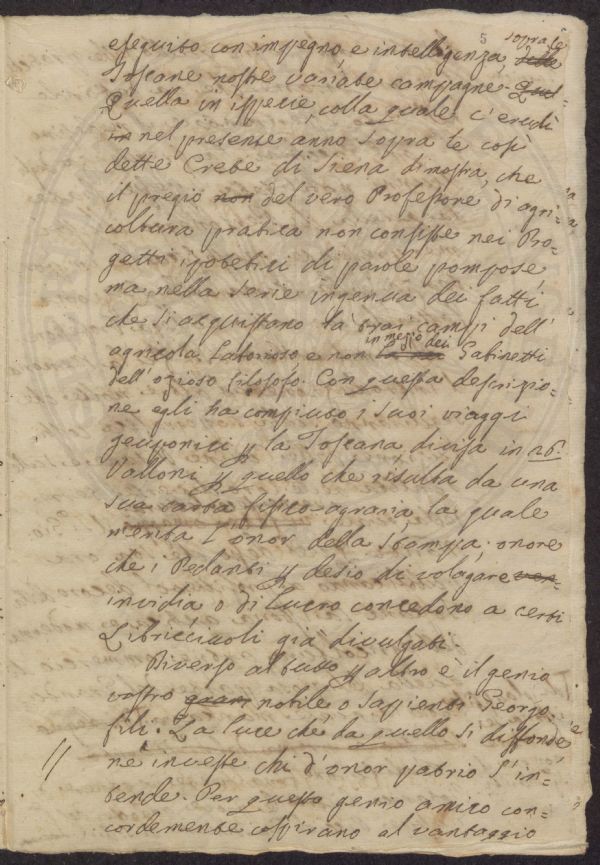 5 sopra le
eseguito con impegno e intelligenza, delle
Toscane nostre variate campagne. Quel-
Quella in ispecie, colla quale c'erudì
in nel presente anno sopra le così
dette Crete di Siena dimostra, che
il pregio non del vero Professore di agri-
coltura pratica non consiste nei Pro-
getti ipotetici di parole pompose,
ma nella serie ingenua dei fatti
che si acquistano là trai campi dell'
in mezzo dei
agricola laborioso, e non Gabinetti
dell'ozioso filosofo. Con questa descrizio-
ne egli ha compiuto i suoi viaggi
geuponici p la Toscana divisa in 26.
Valloni p quello che risulta da una
sua carta fisico-agraria la quale
merita l'onor della stampa; onore
che i Pedanti p desio di
invidia o di lucro concedono a certi
Libricciuoli già divulgati.
Diverso al tutto p altro è il genio
vostro nobile o sapienti Georgo-
fili. La luce che da quello si diffonde
ne investe chi d'onor patrio s'in-
tende. Per questo genio amico con-
cordemente cospirano al vantaggio